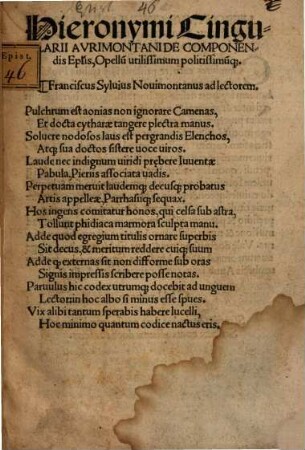 Epist.
46
Hieronymi Cingu
LARII AVRIMONTANI DE COMPONEN-
dis Epłis, Opellū utilissimum politissimūq;
Franciscus Syluius Nouimontanus ad lectorem.
Pulchrum est aonias non ignorare Camenas,
Et docta cytharæ tangere plectra manus.
Soluere nodosos laus est pergrandis Elenchos,
Atq; sua doctos sistere uoce uiros.
Laude nec indignum uiridi prębere Iuuentæ
Pabula, Pieriis associata uadis.
Perpetuam meruit laudemq; decusq; probatus
Artis appelleæ, Parrhasiiq; sequax.
Hos ingens comitatur honos, qui celsa sub astra,
Tollunt phidiaca marmora sculpta manu.
Adde quod egregium titulis ornare superbis
Sit decus, & meritum reddere cuiq; suum
Adde q externas sit non difforme sub oras
Signis impressis scribere posse notas.
Paruulus hic codex utrumq; docebit ad unguem
Lectorin hoc albo si minus esse spues.
Vix alibi tantum sperabis habere lucelli,
Hoc minimo quantum codice nactus eris.